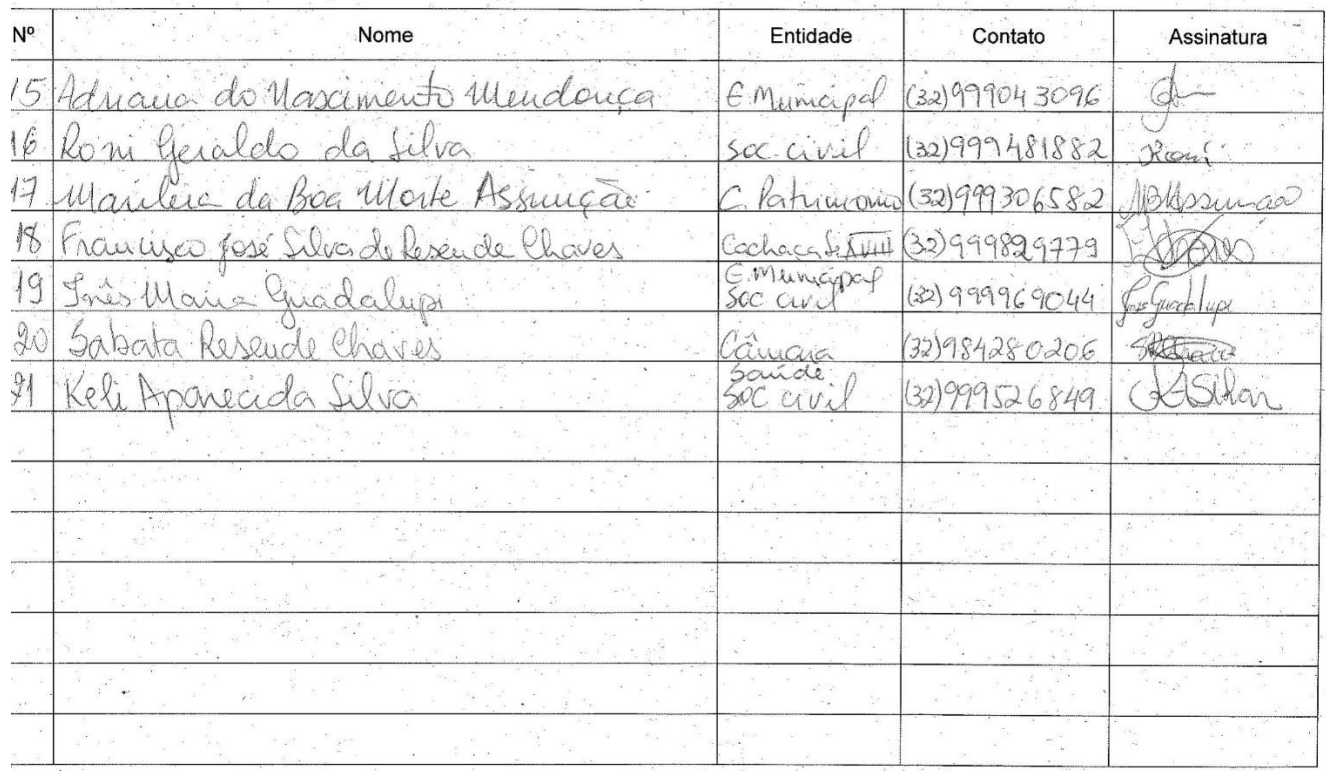 Nº Nome Entidade Contato Assinatura
15 Adriana do Nascimento Mendonça E. Municipal (32)999043096
16 Roni Geraldo da Silva Soc. civil (32)999481882 Roni
17 Mariléia da Boa Morte Assunção C. Patrimonio (32)999306582 MBMAssunção
18 Francisco José Silva de Resende Chaves Cachaça S. XVIII (32)999829779
19 Inês Maria Guadalupi E. Municipal Soc civil (32)999969044 Inês Guadalupi
20 Sabata Resende Chaves Câmara (32)984280206
21 Keli Aparecida Silva Saúde Soc civil (32)999526849 KASilva